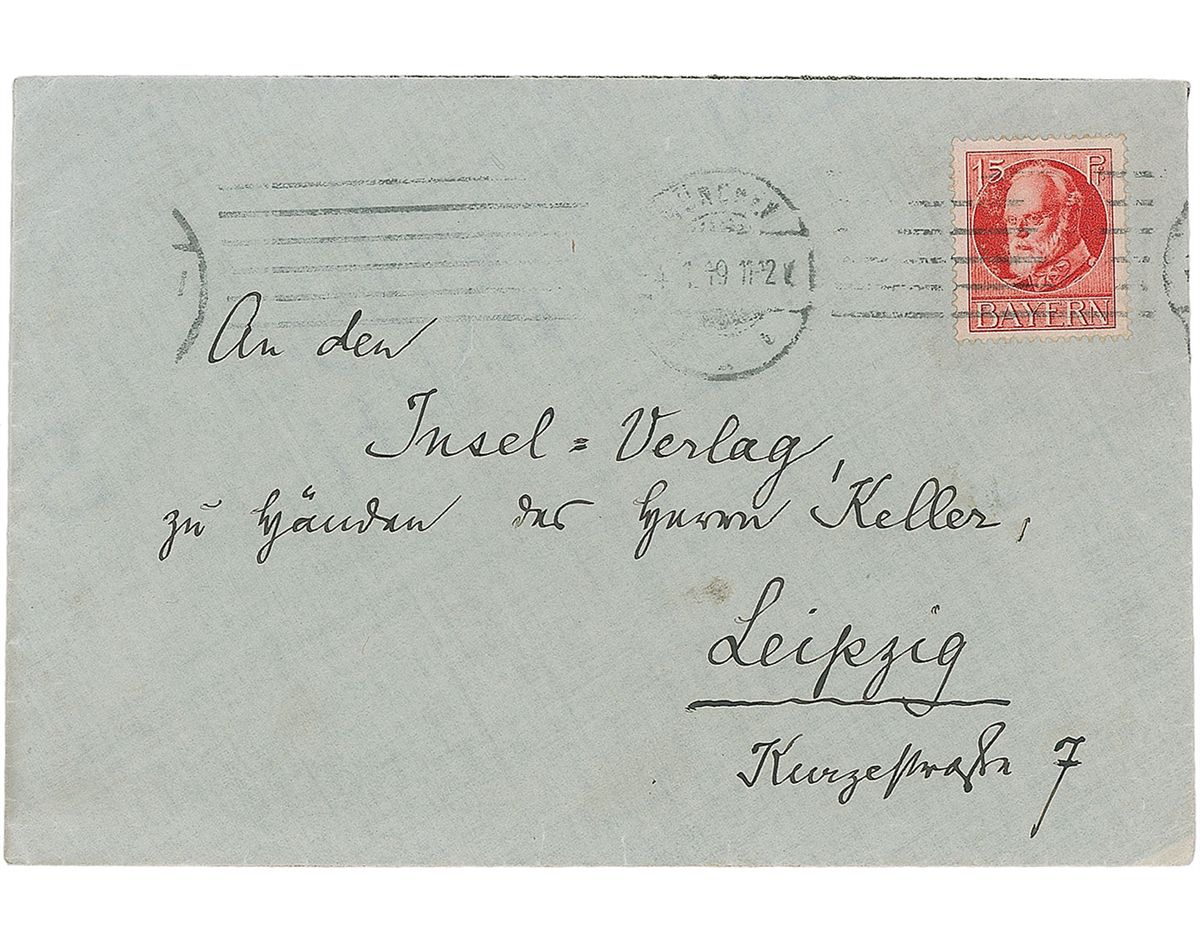 15 Pf
BAYERN
MÜNCHEN
19 11-12 V
An den
Insel=Verlag,
zu Händen des Herrn Keller,
Leipzig
Kurzestraße 7